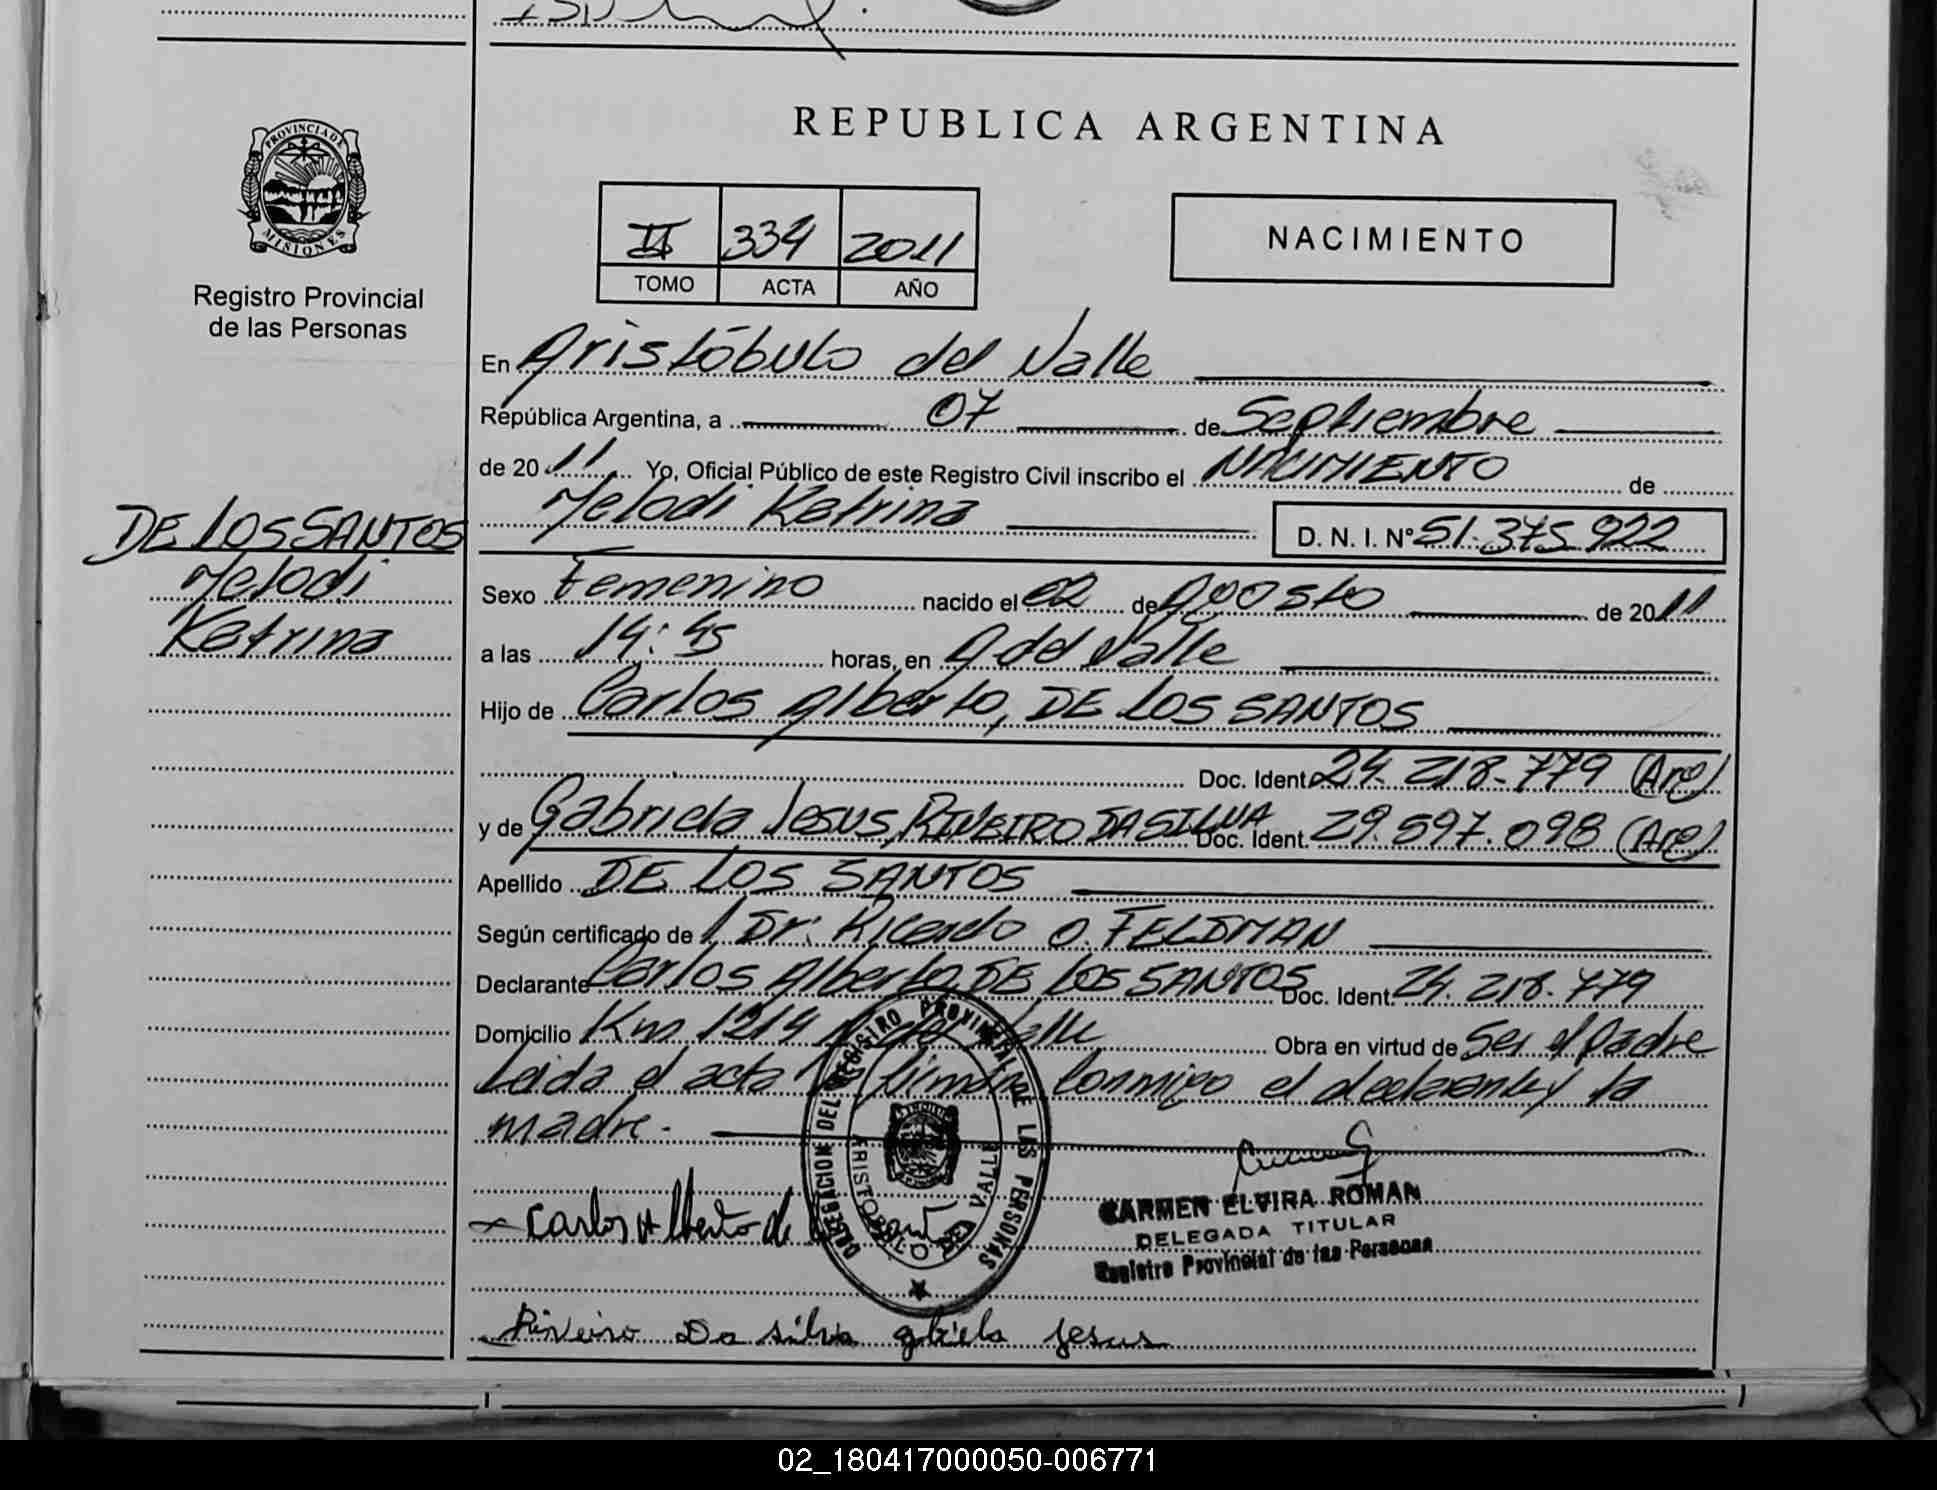 REPUBLICA ARGENTINA
PROVINCIA DE MISIONES
Registro Provincial
de las Personas
II 334 2011
TOMO ACTA AÑO
NACIMIENTO
En Aristóbulo del Valle
República Argentina, a 07 de Septiembre
de 20 11 Yo, Oficial Público de este Registro Civil inscribo el NACIMIENTO de
Melodi Katrina
D. N. I. Nº 51.375.922
DE LOS SANTOS
Melodi
Katrina
Sexo Femenino nacido el 02 de Agosto de 20 11
a las 14:45 horas, en A del Valle
Hijo de Carlos Alberto, DE LOS SANTOS
Doc. Ident. 24.218.779 (Arg)
y de Gabriela Jesus, RIVEIRO DA SILVA Doc. Ident. 29.597.098 (Arg)
Apellido DE LOS SANTOS
Según certificado de Dr. Ricardo O. FELDMAN
Declarante Carlos Alberto DE LOS SANTOS Doc. Ident. 24.218.779
Domicilio Km 1214 A del Valle Obra en virtud de Ser el padre
Leida el acta la firman conmigo el declarante y la
madre.-
DELEGACION DEL REGISTRO PROVINCIAL DE LAS PERSONAS
ARISTOBULO DEL VALLE
CARMEN ELVIRA ROMAN
DELEGADA TITULAR
Registro Provincial de las Personas
Carlos Alberto de
Riveiro Da silva gbiela Jesus
02_180417000050-006771